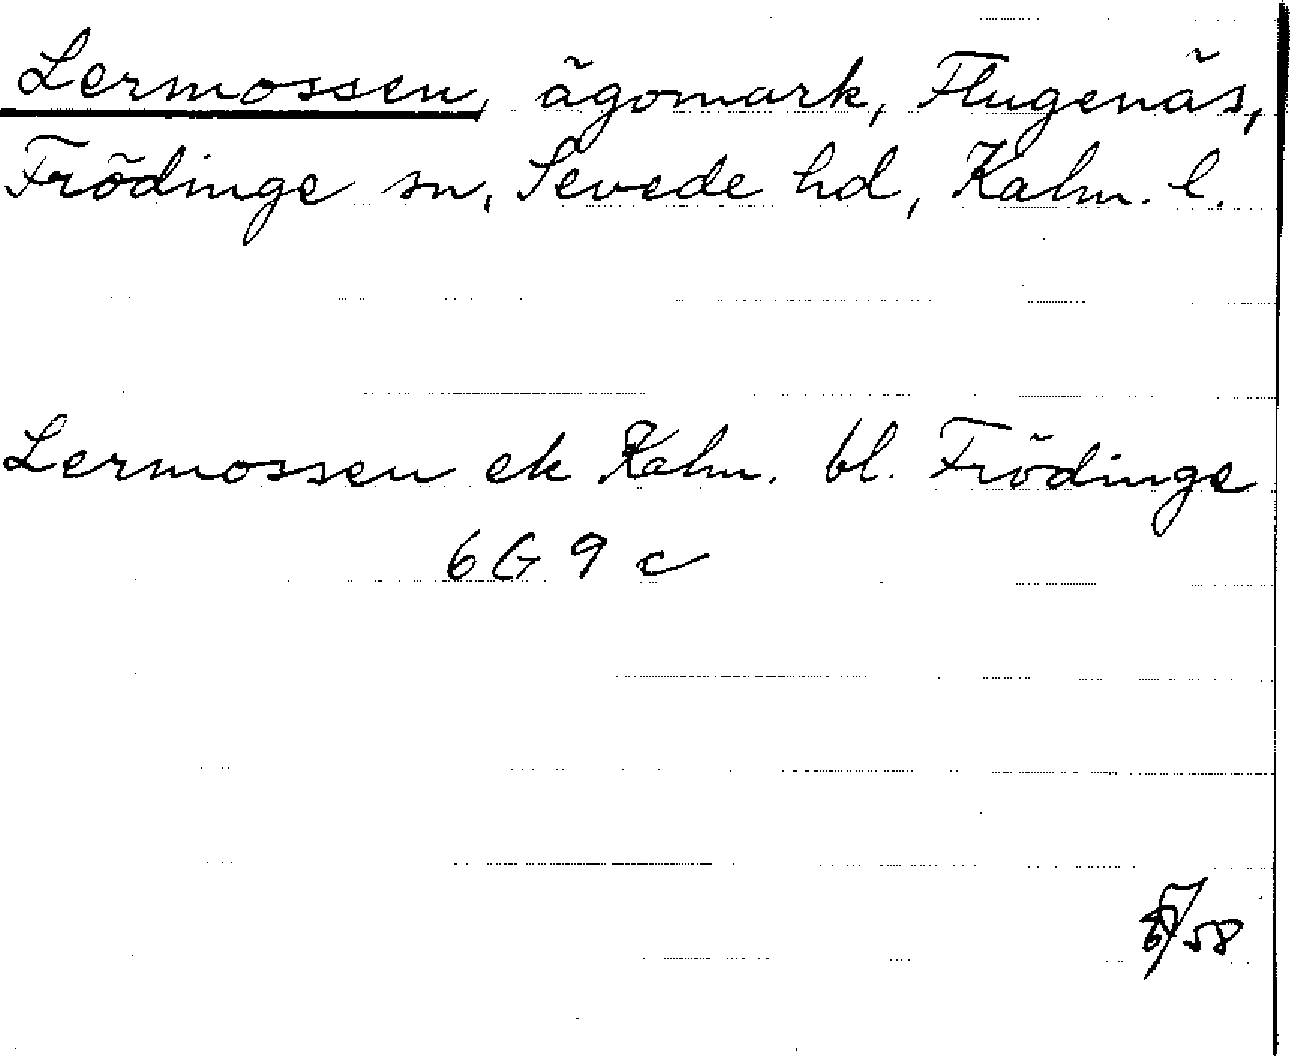 Lermossen, ägomark, Flugenäs,
Frödinge sn, Sevede hd, Kalm. l.
Lermossen ek Kalm. bl. Frödinge
6 G 9 c